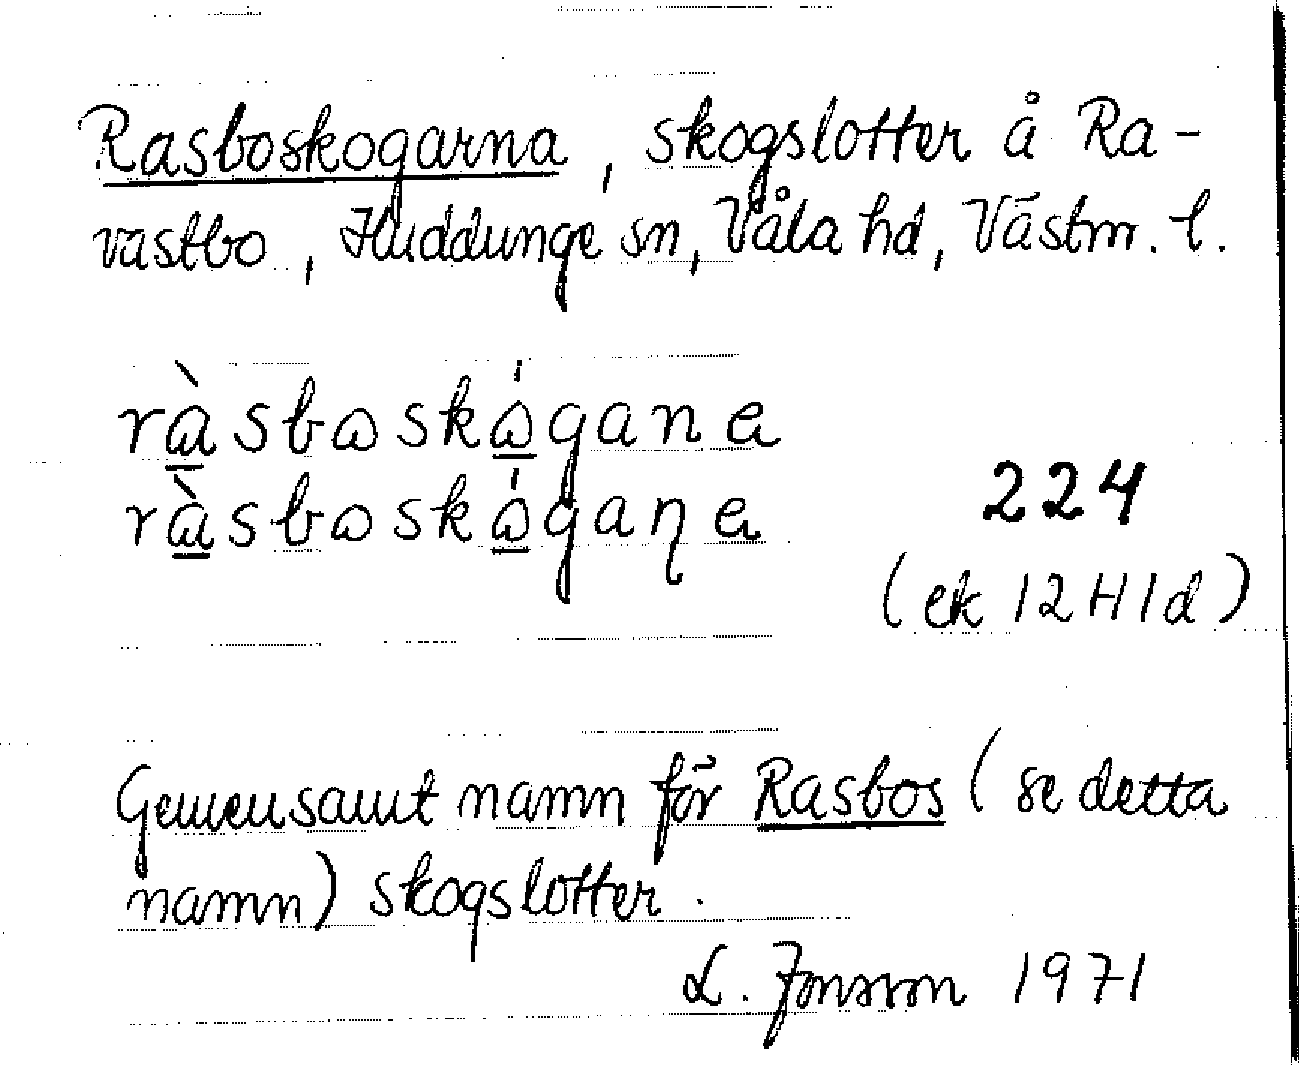 Rasboskogarna, skogslotter å Ra-
vastbo, Huddunge sn, Våla hd, Västm. l.
ràsbωskώgana
ràsbωskώgaɳa
224
(ek 12H1d)
Gemensamt namn för Rasbos (se detta
namn) skogslotter.
L. Jonsson 1971